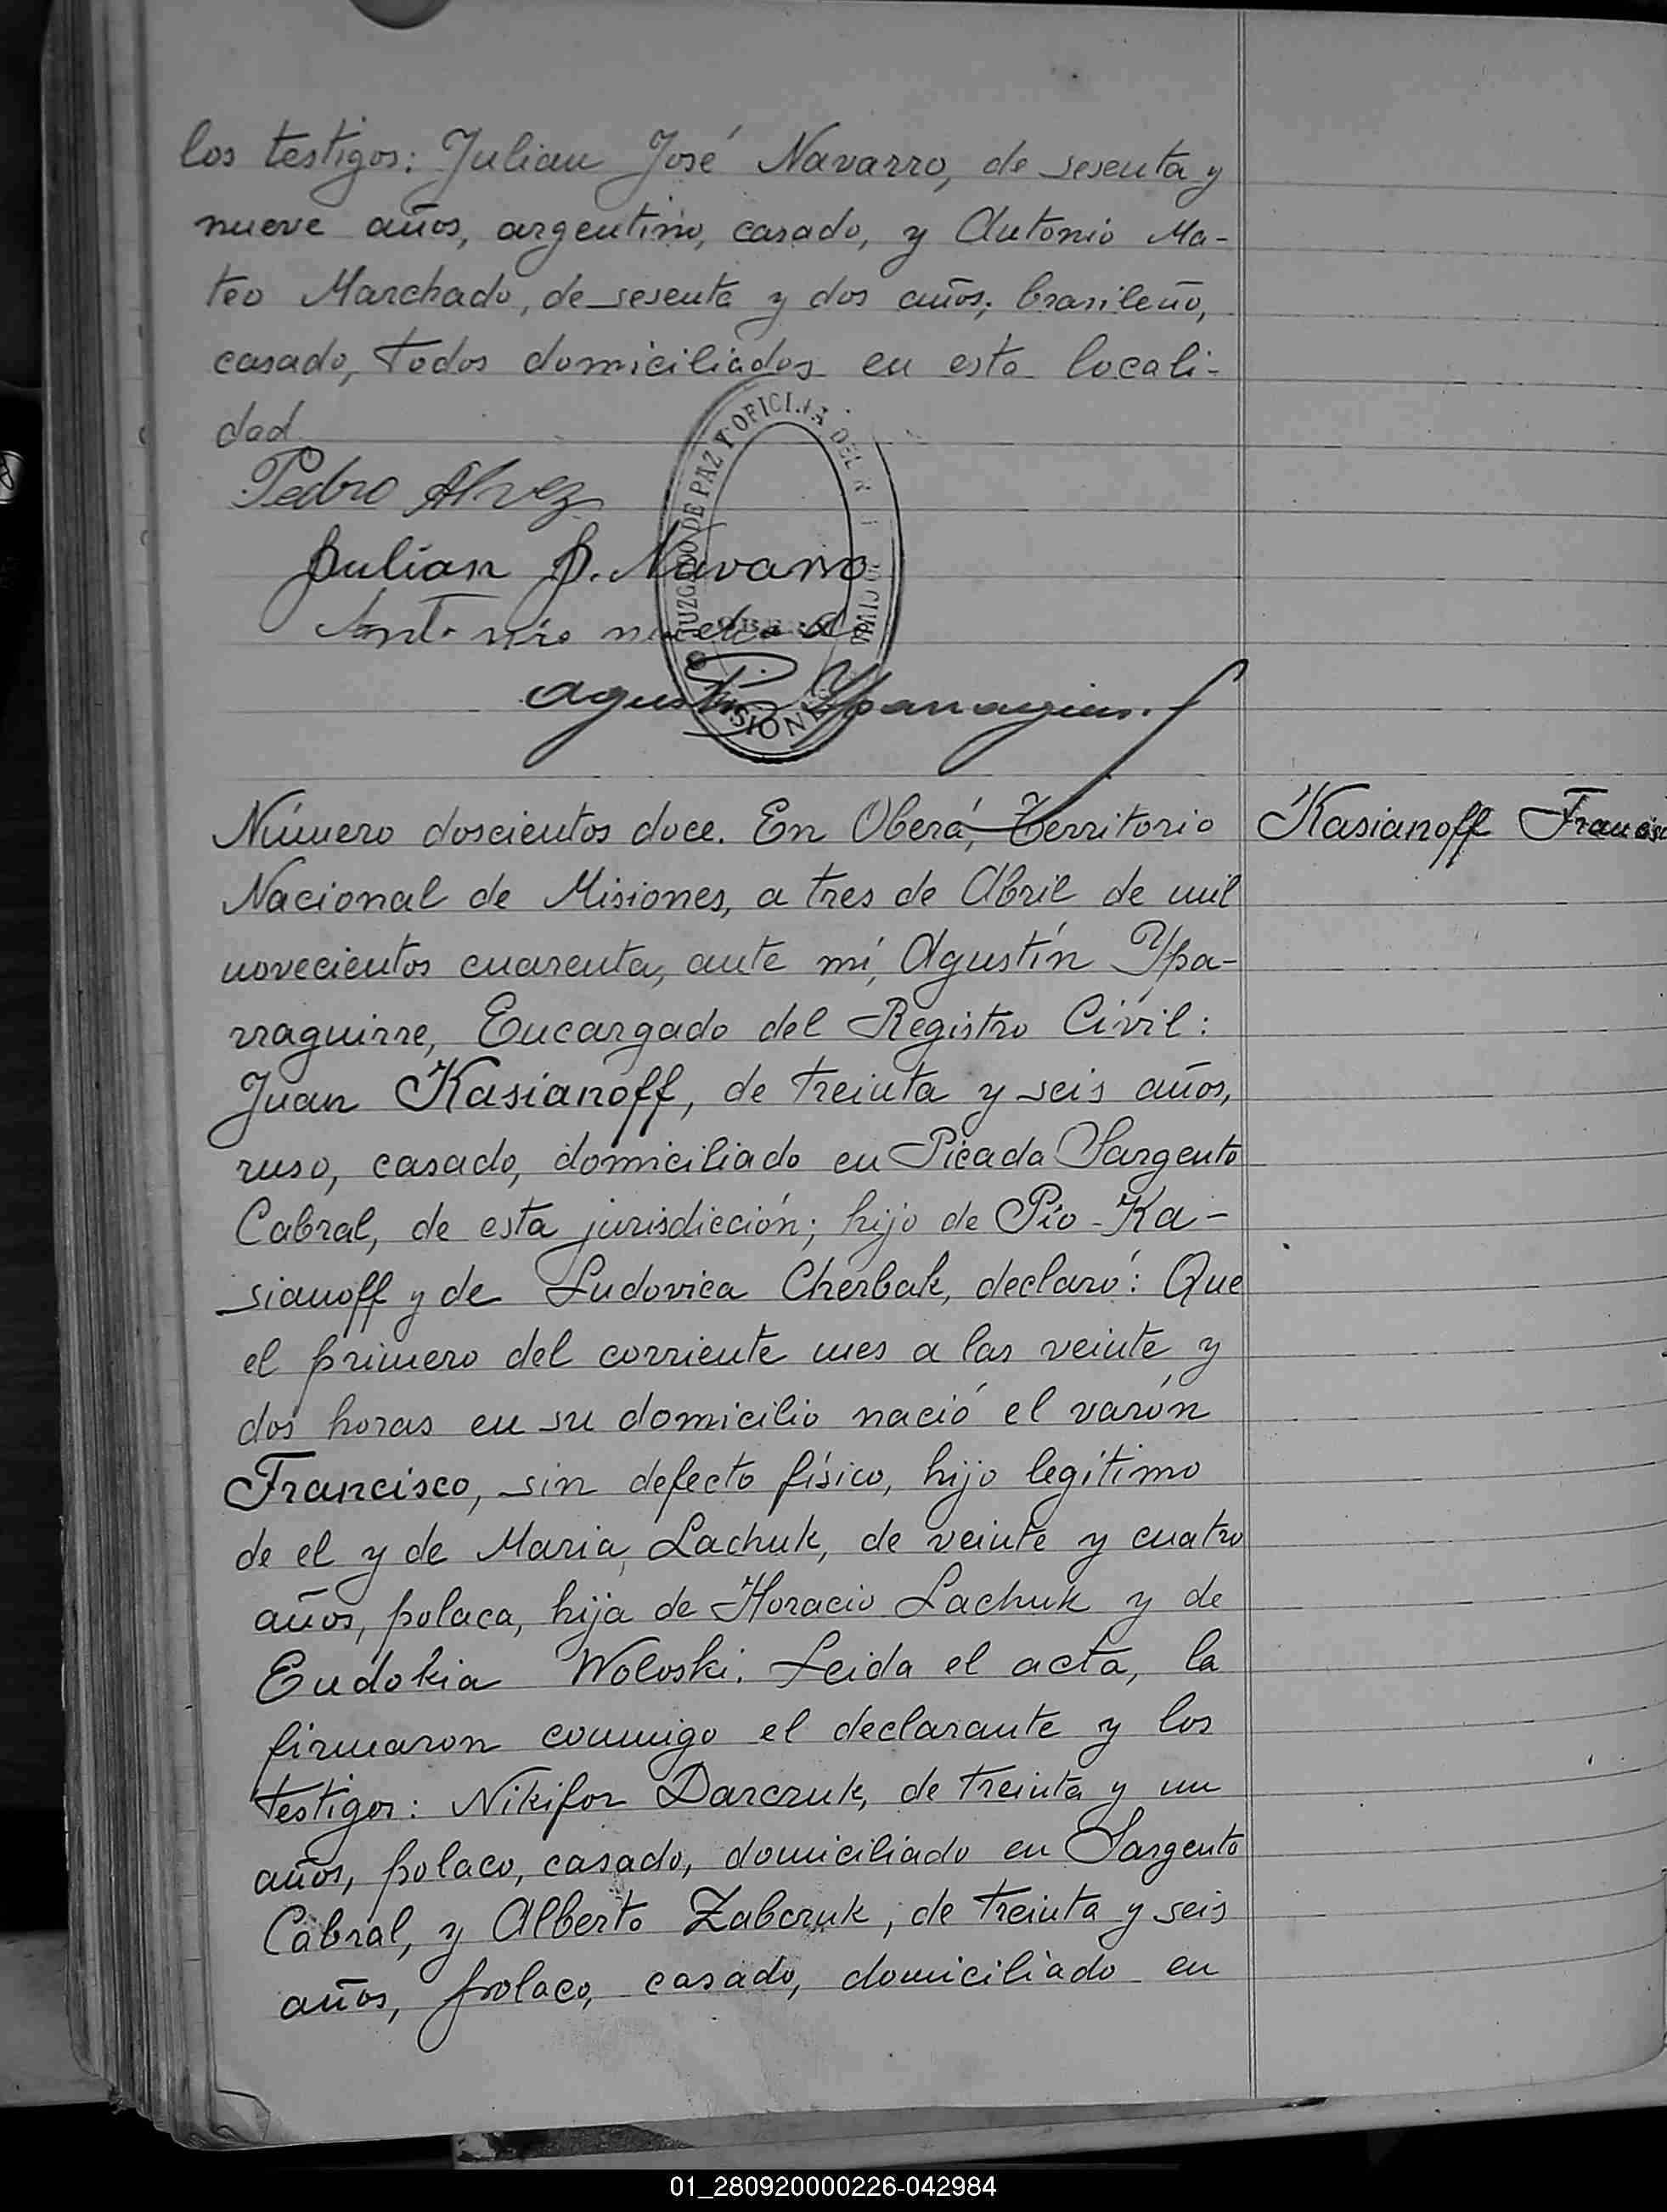 los testigos: Julian José Navarro, de sesenta y
nueve años, argentino, casado, y Antonio Ma-
teo Marchado, de sesenta y dos años, brasileño,
casado, todos domiciliados en esta locali-
dad
Pedro Alvez
Julian J. Navarro
Antonio
JUZGADO DE PAZ Y OFICINA DEL R
CIVIL
MISIONES
Agustin Yparraguirre
Número doscientos doce. En Oberá, Territorio
Kasianoff Francisc
Nacional de Misiones, a tres de Abril de mil
novecientos cuarenta, ante mí, Agustín Ypa-
rraguirre, Encargado del Registro Civil:
Juan Kasianoff, de treinta y seis años,
ruso, casado, domiciliado en Picada Sargento
Cabral, de esta jurisdicción; hijo de Pío Ka-
sianoff y de Ludovica Cherbak, declaró: Que
el primero del corriente mes a las veinte y
dos horas en su domicilio nació el varón
Francisco, sin defecto físico, hijo legítimo
de el y de Maria Lachuk, de veinte y cuatro
años, polaca, hija de Horacio Lachuk y de
Eudokia Woloski. Leida el acta, la
firmaron conmigo el declarante y los
testigos: Nikifor Darczuk, de treinta y un
años, polaco, casado, domiciliado en Sargento
Cabral, y Alberto Zabczuk, de treinta y seis
años, polaco, casado, domiciliado en
01_280920000226-042984